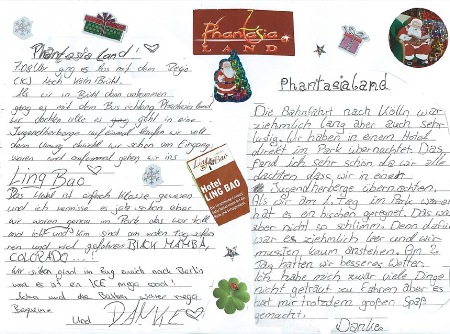 Phantasia Land!
7.08 Uhr ging es los mit dem Rege
(RE) nach Köln Brühl.
Als wir in Brühl dann ankamen
ging es mit dem Bus richtung Phantasia Land
wir dachten alle es geht in eine
Jugendherberge auf einmal
waren und aufeinmal gehen wir ins
Ling Bao
Das Hotel ist einfach Klasse gewesen
und ich vermisse es jetzt schon aber
wir waren genau im Park das war toll
und ich und Kim sind am ersten Tag
ren und viel gefahren BLACK MAMBA,
COLORADO...!
Wir sahen grad im Zug zurück nach Berlin
und es ist ein ICE mega cool!
John und der Besten waren mega
Begleiter
Und DANKE
Phantasia
LAND
Ling Bao
Hotel
LING BAO
Phantasialand
Die Bahnfahrt nach Kölln war
ziehmlich lang aber auch sehr
lustig. Wir haben in einem Hotel
direkt im Park übernachtet. Das
fand ich sehr schön da wir alle
dachten dass wir in einer
Jugendherberge übernachten.
Als wir am 1. Tag im Park waren
hat es ein bischen geregnet. Das war
aber nicht so schlimm. Denn dafür
war es ziehmlich leer und wir
mussten kaum anstehen. Am 2.
Tag hatten wir besseres Wetter.
Ich habe mich zwar viele Dinge
nicht getraut zu fahren aber es
hat mir trotzdem großen Spaß
gemacht.
Danke